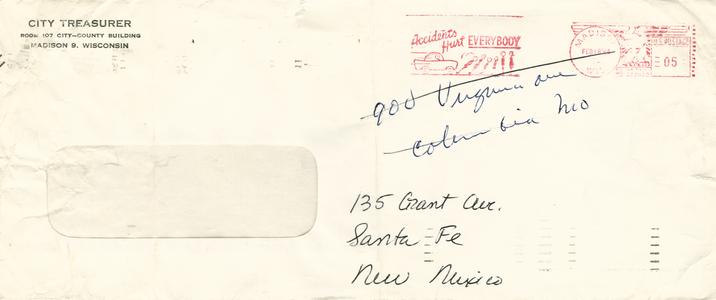 CITY TREASURER
ROOM 107 CITY-COUNTY BUILDING
MADISON 9, WISCONSIN
Accidents
Hurt EVERYBODY
MADIS
FEB
05
900 Virginia ave
Columbia Mo
135 Grant Ave.
Santa Fe
New Mexico